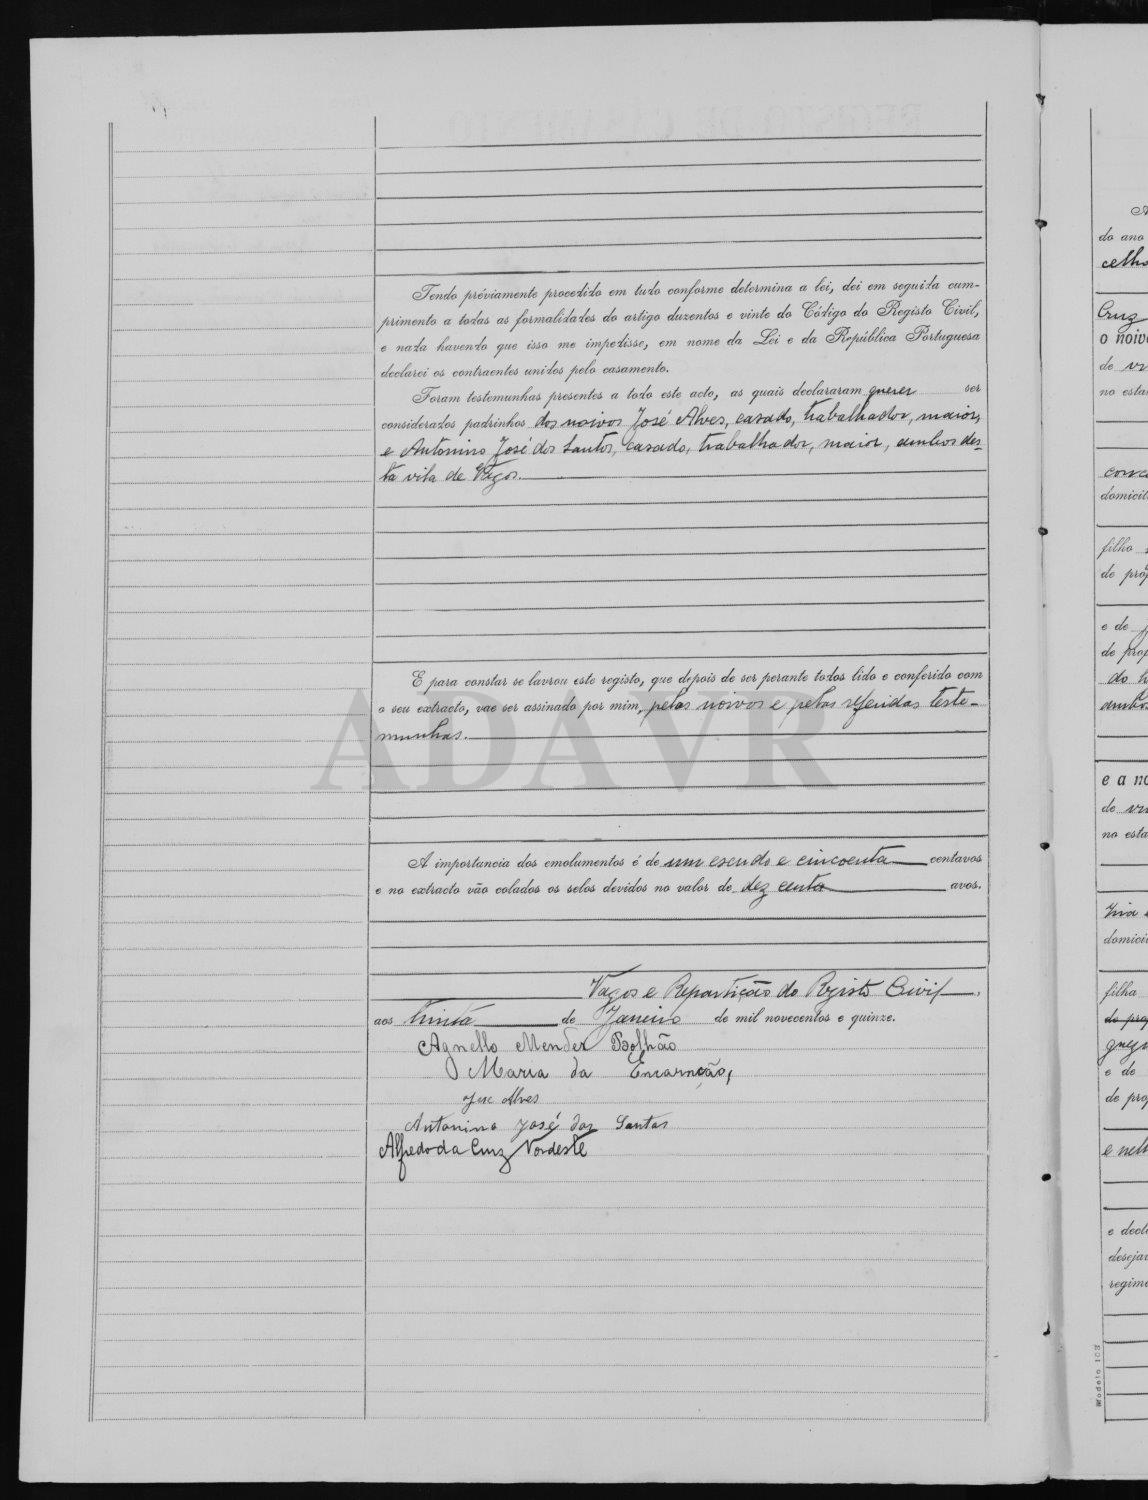 Tendo préviamente procedido em tudo conforme determina a lei, dei em seguida cum-
primento a todas as formalidades do artigo duzentos e vinte do Código do Registo Civil,
e nada havendo que isso me impedisse, em nome da Lei e da República Portuguesa
declarei os contraentes unidos pelo casamento.
Foram testemunhas presentes a todo este acto, as quais declararam querer ser
considerados padrinhos dos noivos José Alves, casado, trabalhador, maior,
e Antonino José dos Santos, casado, trabalhador, maior, ambos des-
ta vila de Vagos.
E para constar se lavrou este registo, que depois de ser perante todos lido e conferido com
o seu extracto, vae ser assinado por mim, pelos noivos e pelas referidas teste-
munhas.
ADAVR
A importancia dos emolumentos é de um escudo e cincoenta centavos
e no extracto vão colados os selos devidos no valor de dez centa avos.
Vagos e Repartição do Registo Civil,
aos trinta de Janeiro de mil novecentos e quinze.
Agnello Mendes Bolhão
Maria da Encarnação,
José Alves
Antonino José dos Santos
Alfredo da Cruz Nordeste
do ano
celho
Cruz
o noivo
de
no esta
domicil
filho
de prop
e de
de prop
do
ambos
e a no
de
no esta
domici
filha
do prop
e de
de prop
e
e decl
desejar
regime
Modelo 108